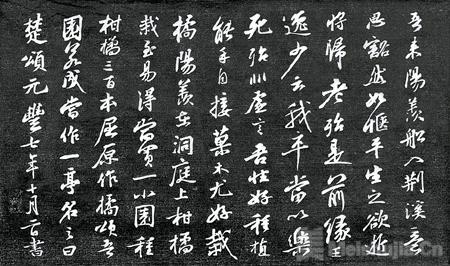 吾来陽羨船入荆溪意
思豁然如惬平生之欲逝
将歸老殆是前緣王
逸少云我卒當以樂
死殆非虚言吾性好種植
能手自接菓木尤好栽
橘陽羨在洞庭上柑橘
栽至易得當買一小園種
柑橘三百本屈原作橘頌吾
園若成當作一亭名之曰
楚頌元豐七年十月二日書